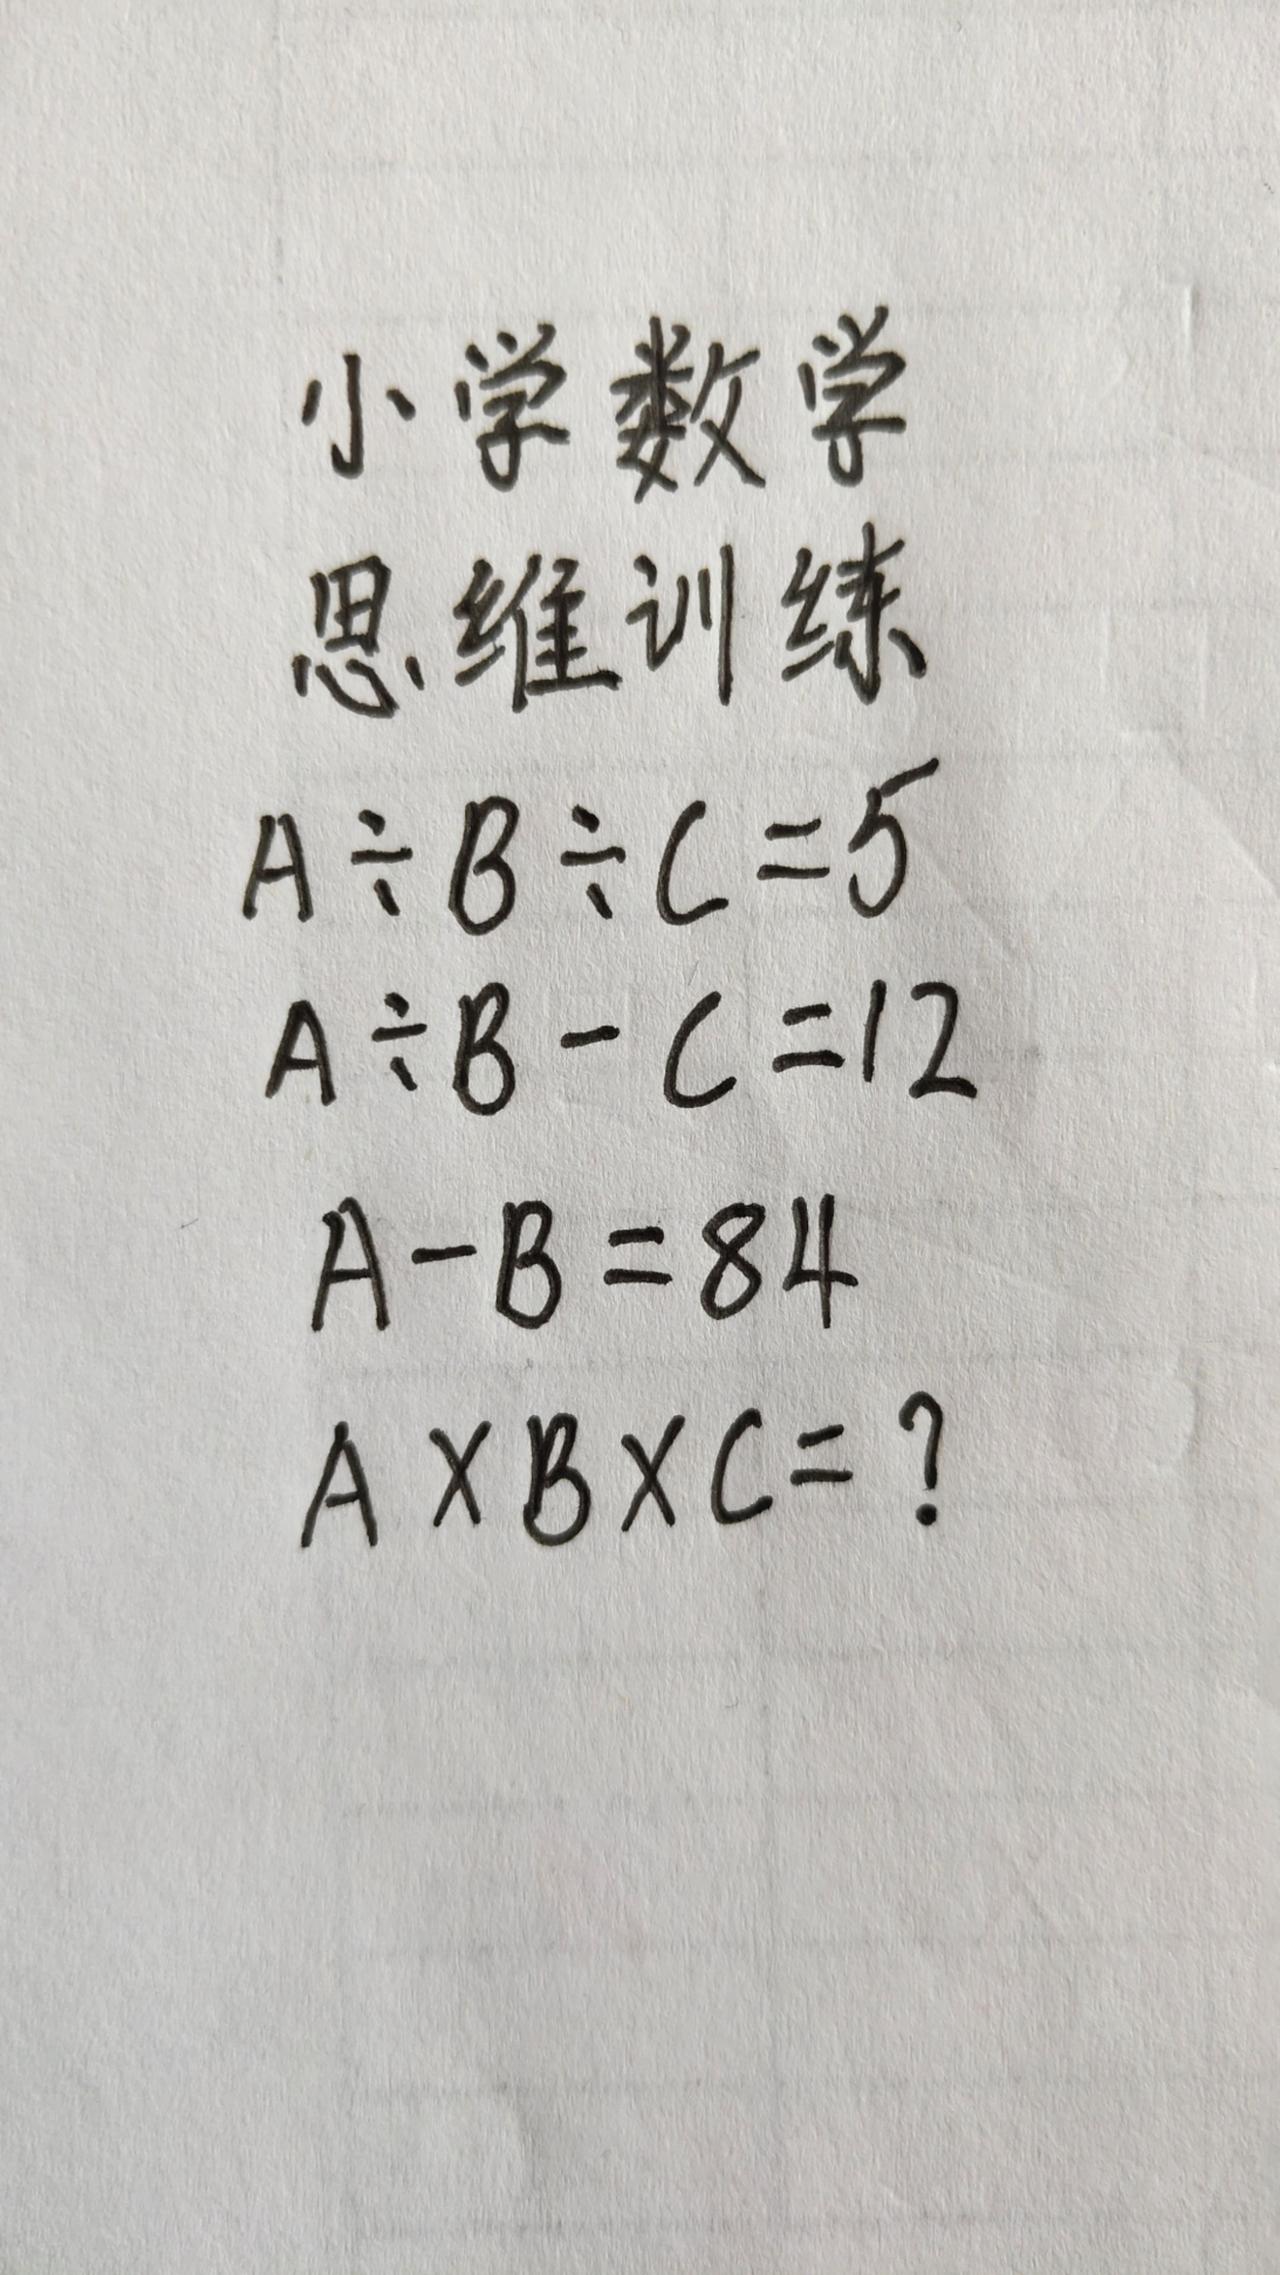 小学数学
思维训练
A÷B÷C=5
A÷B-C=12
A-B=84
A×B×C=?